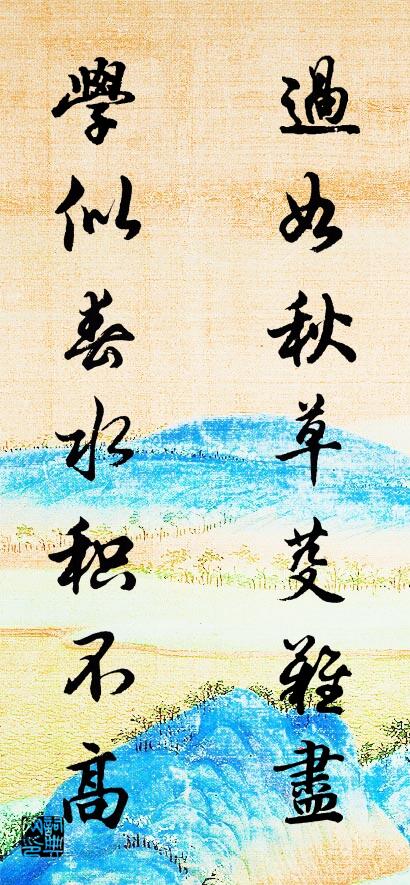 過如秋草芟難盡
學似春水积不高